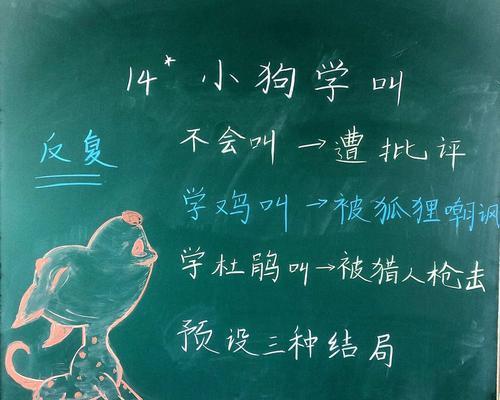 14* 小狗学叫
反复
不会叫→遭批评
学鸡叫→被狐狸嘲讽
学杜鹃叫→被猎人枪击
预设三种结局